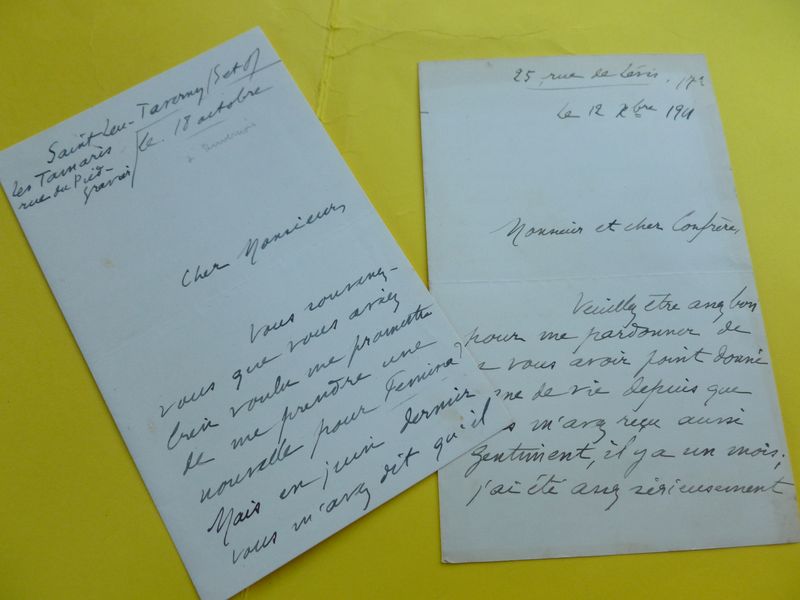 Saint-Leu-Taverny (S et O)
Les Tamaris
rue du Pied-
gravier
le 18 octobre
Cher Monsieur,
Vous souvenez-
vous que vous aviez
bien voulu me promettre
de me prendre une
nouvelle pour Femina,
Mais en juin dernier
vous m'avez dit qu'il
25, rue de Lévis, 17e
Le 12 Xbre 1911
Monsieur et cher Confrère,
Veuillez être assez bon
pour me pardonner de
vous avoir point donné
de vie depuis que
m'avez reçu aussi
gentiment, il y a un mois;
j'ai été assez sérieusement